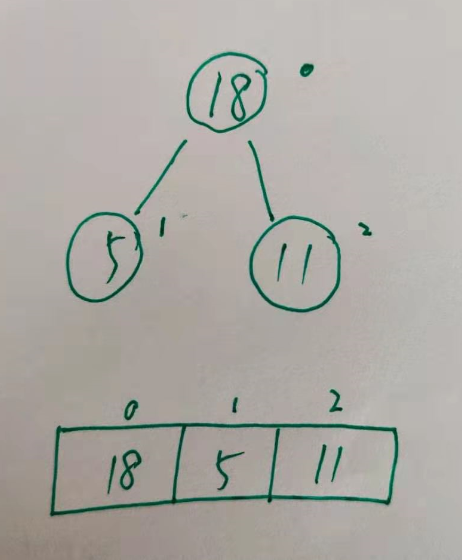 18 0
5 1 11 2
0 1 2
18 5 11